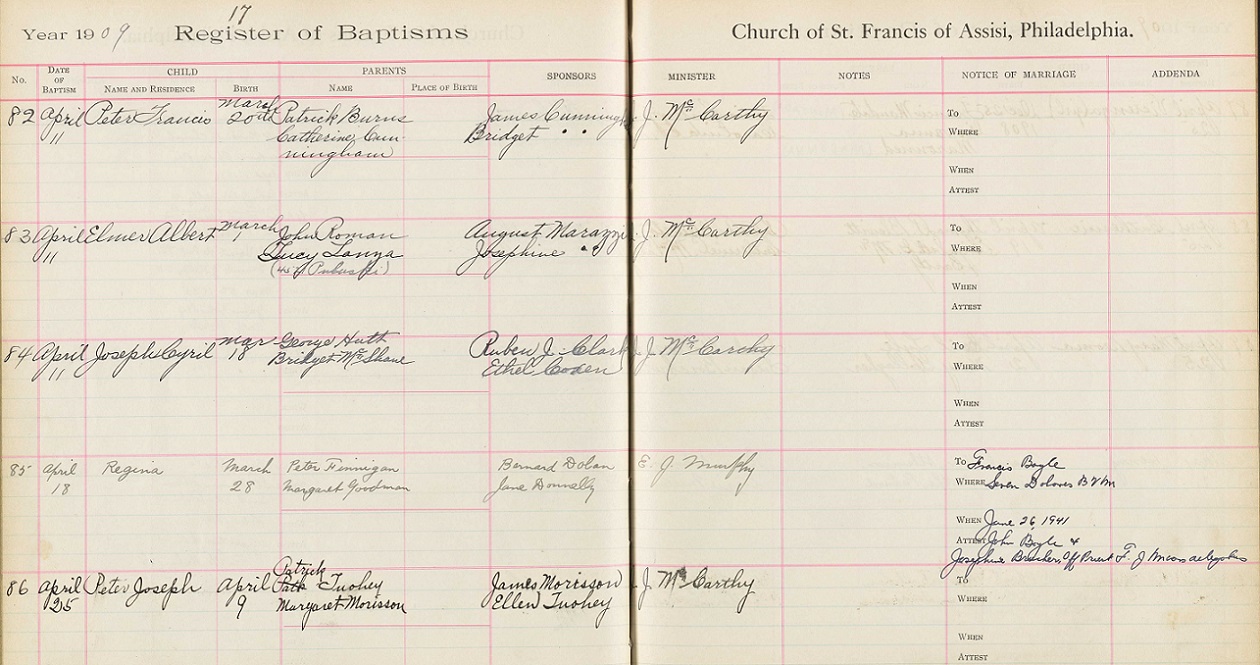 17
Year 1909 Register of Baptisms Church of St. Francis of Assisi, Philadelphia.
No. DATE OF BAPTISM CHILD NAME AND RESIDENCE BIRTH PARENTS NAME PLACE OF BIRTH SPONSORS MINISTER NOTES NOTICE OF MARRIAGE ADDENDA
82 April 11 Peter Francis March 20th Patrick Burns James Cunningh J. McCarthy To
Catherine Cun Bridget " " WHERE
ningham
WHEN
ATTEST
83 April 11 Elmer Albert March 1 John Roman August Marazzi J. McCarthy To
Lucy Lanna Josephine " " WHERE
WHEN
ATTEST
84 April 11 Joseph Cyril Mar 18 George Huth Ruben J. Clark J. McCarthy To
Bridget McShane Ethel Coxen WHERE
WHEN
ATTEST
85 April 18 Regina March 28 Peter Finnigan Bernard Dolan E. J. Murphy To Francis Boyle
Margaret Goodman Jane Donnelly WHERE Seven Dolores BVM
WHEN June 26 1941
ATTEST John Boyle &
Josephine
Patrick
86 April 25 Peter Joseph April 9 Tuohey James Morisson J. McCarthy To
Margaret Morisson Ellen Tuohey WHERE
WHEN
ATTEST